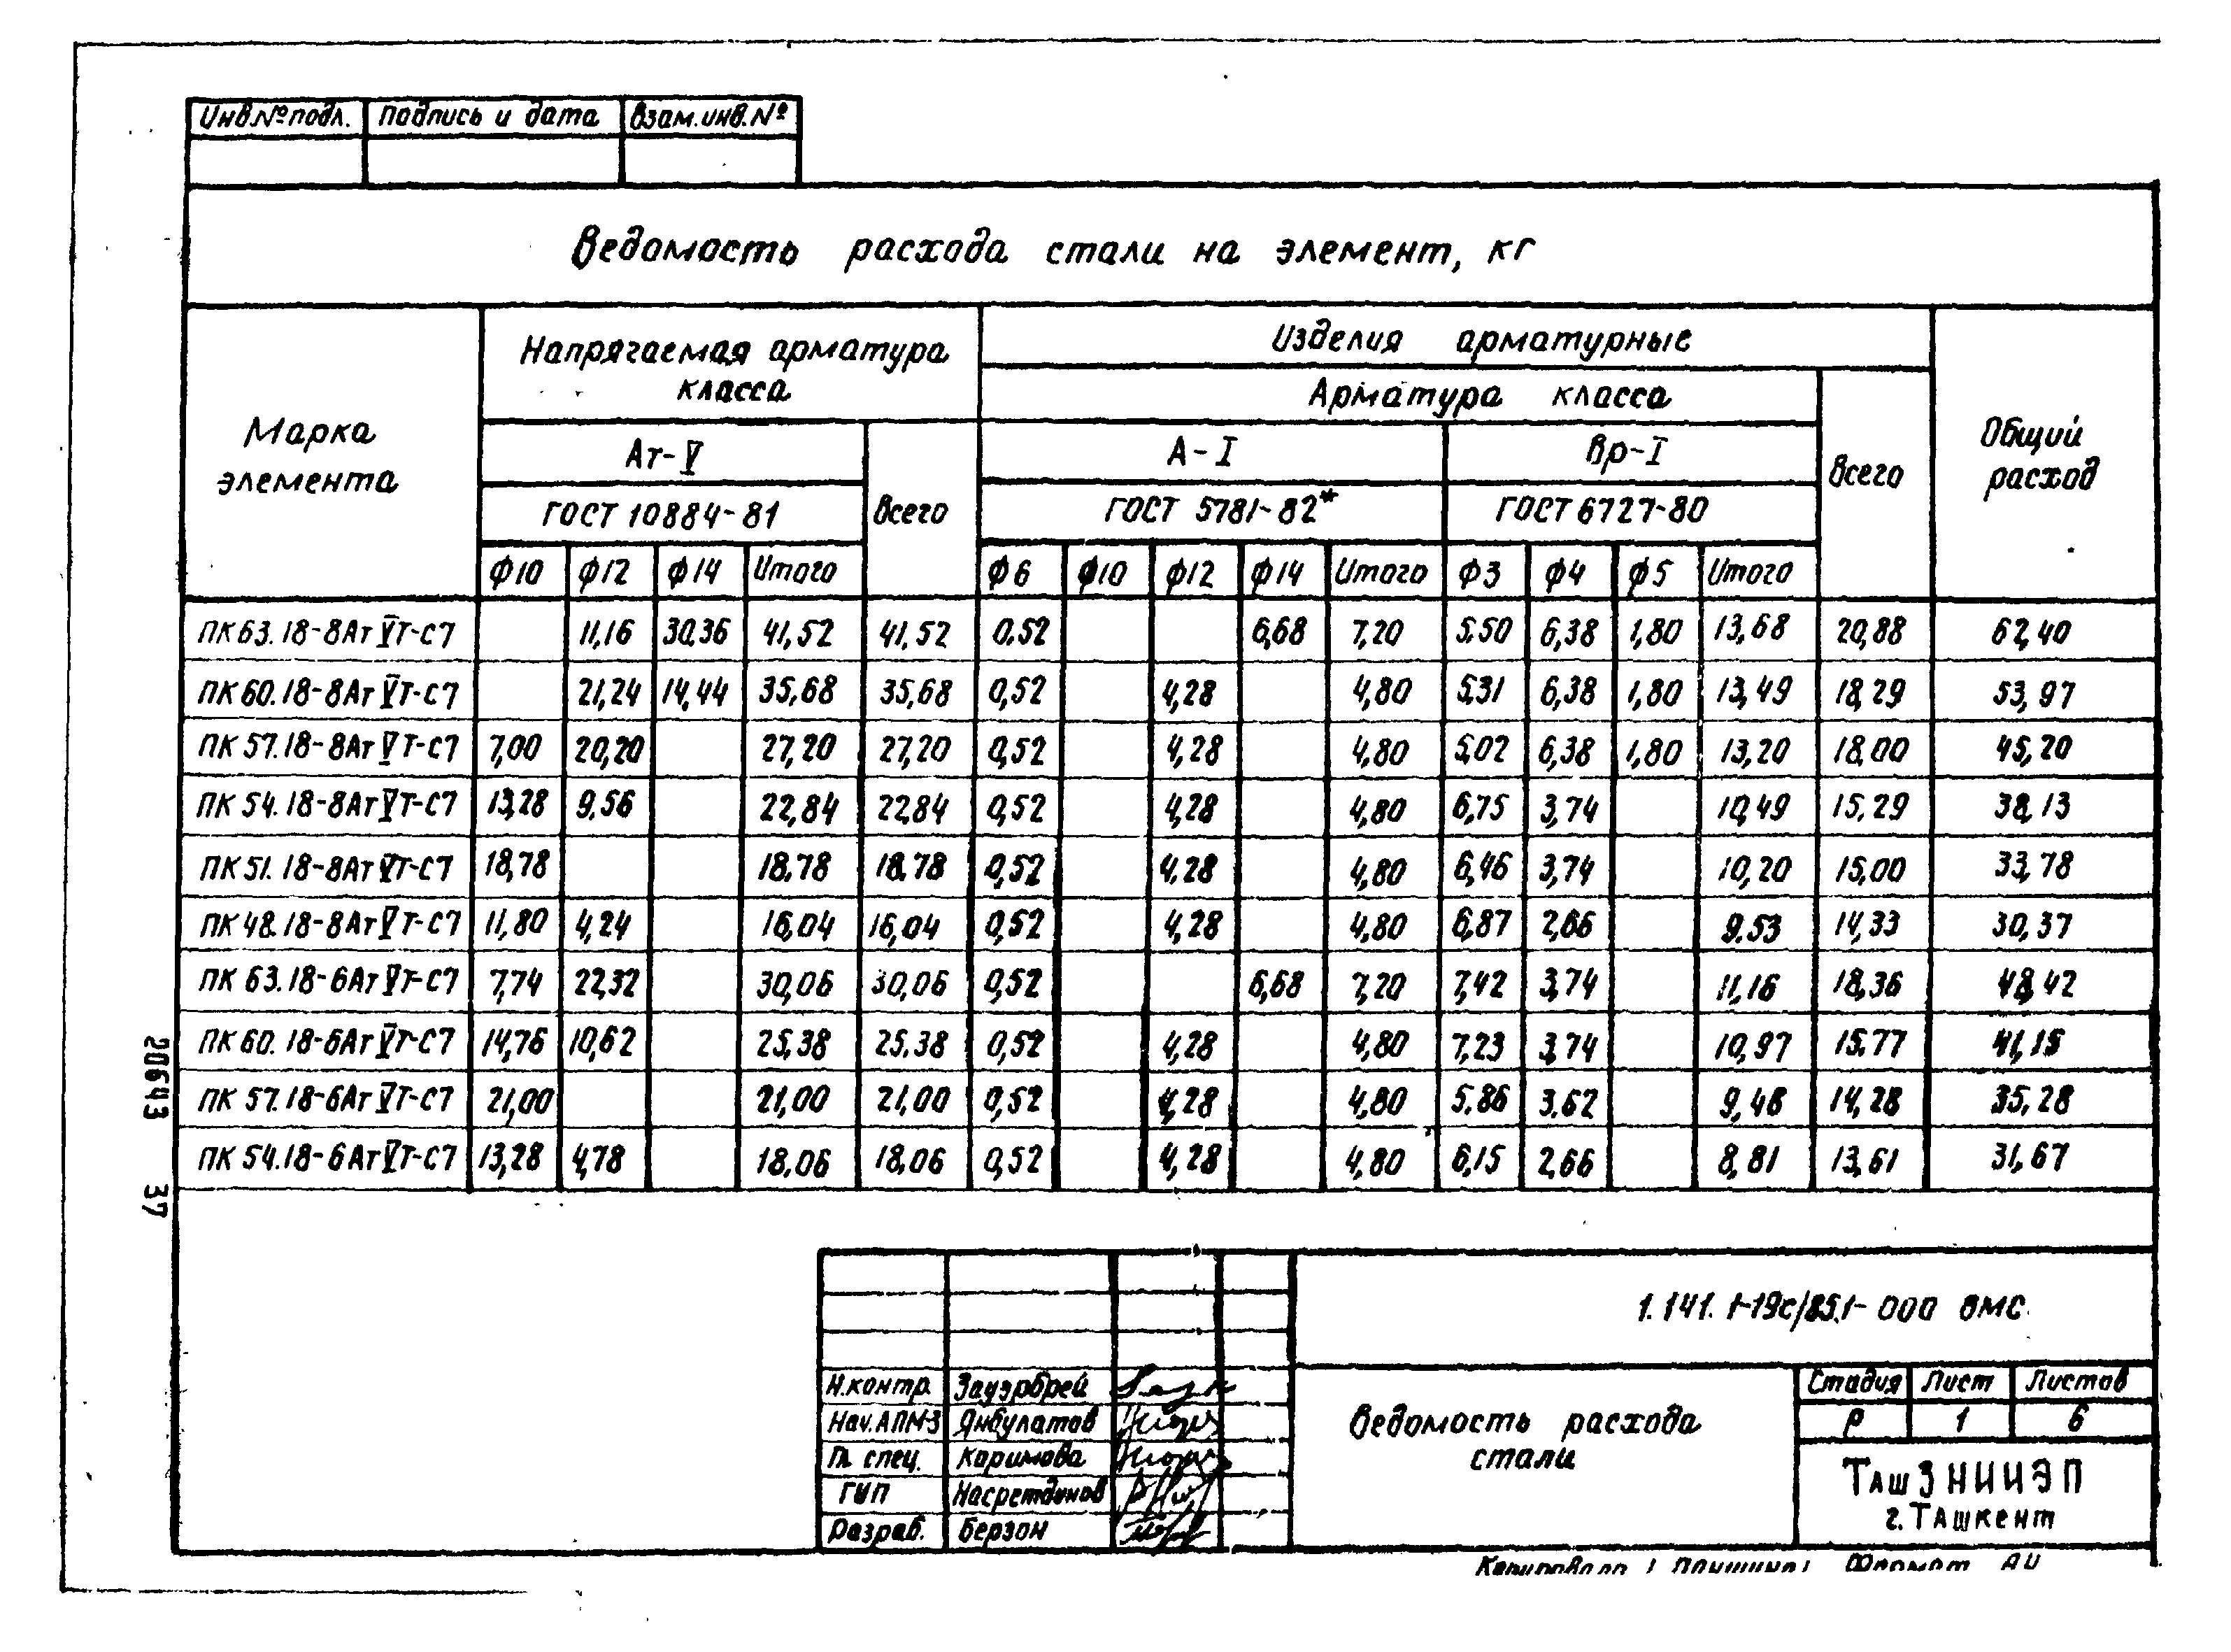 Инв.№ подл. Подпись и дата Взам.инв.№
Ведомость расхода стали на элемент, кг
Марка элемента
Напрягаемая арматура класса
Изделия арматурные
Общий расход
Арматура класса
Ат-V
Всего
А-I
Вр-I
Всего
ГОСТ 10884-81
ГОСТ 5781-82*
ГОСТ 6727-80
Ф10 Ф12 Ф14 Итого Ф6 Ф10 Ф12 Ф14 Итого Ф3 Ф4 Ф5 Итого
ПК63.18-8АтVТ-С7 11,16 30,36 41,52 41,52 0,52 6,68 7,20 5,50 6,38 1,80 13,68 20,88 62,40
ПК60.18-8АтVТ-С7 21,24 14,44 35,68 35,68 0,52 4,28 4,80 5,31 6,38 1,80 13,49 18,29 53,97
ПК57.18-8АтVТ-С7 7,00 20,20 27,20 27,20 0,52 4,28 4,80 5,02 6,38 1,80 13,20 18,00 45,20
ПК54.18-8АтVТ-С7 13,28 9,56 22,84 22,84 0,52 4,28 4,80 6,75 3,74 10,49 15,29 38,13
ПК51.18-8АтVТ-С7 18,78 18,78 18,78 0,52 4,28 4,80 6,46 3,74 10,20 15,00 33,78
ПК48.18-8АтVТ-С7 11,80 4,24 16,04 16,04 0,52 4,28 4,80 6,87 2,66 9.53 14,33 30,37
ПК63.18-6АтVТ-С7 7,74 22,32 30,06 30,06 0,52 6,68 7,20 7,42 3,74 11,16 18,36 48,42
ПК60.18-6АтVТ-С7 14,76 10,62 25,38 25.38 0,52 4,28 4,80 7,23 3,74 10,97 15,77 41,15
ПК57.18-6АтVТ-С7 21,00 21,00 21,00 0,52 4,28 4,80 5,86 3,62 9,48 14,28 35,28
ПК54.18-6АтVТ-С7 13,28 4,78 18,06 18,06 0,52 4,28 4,80 6,15 2,66 8,81 13,61 31,67
20643 37
1.141.1-19с/85.1-000 ВМС
Н.контр. Зауэрбрей
Нач.АПМ-3 Янбулатов
Гл. спец. Каримова
ГИП Насретдинов
Разраб. Берзон
Ведомость расхода
стали
Стадия Лист Листов
Р 1 6
ТашЗНИИЭП
г.Ташкент